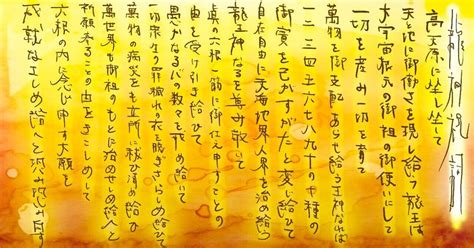 龍神祝詞
高天原に坐し坐して
天と地に御働きを現し給う龍王は
大宇宙根元の御祖の御使いにして
一切を産み一切を育て
萬物を御支配あらせ給う王神なれば
一二三四五六七八九十の十種の
御寶を己がすがたと変じ給いて
自在自由に天界地界人界を治め給う
龍王神なるを尊み敬いて
眞の六根一筋に御仕え申すことの
由を受け引き給いて
愚かなる心の数々を戒め給いて
一切衆生の罪穢れの衣を脱ぎさらしめ給いて
萬物の病災をも立所に祓い清め給い
萬世界も御祖のもとに治めせしめ給へと
祈願奉ることの由をきこしめして
六根の内に念じ申す大願を
成就なさしめ給へと恐み恐み白す